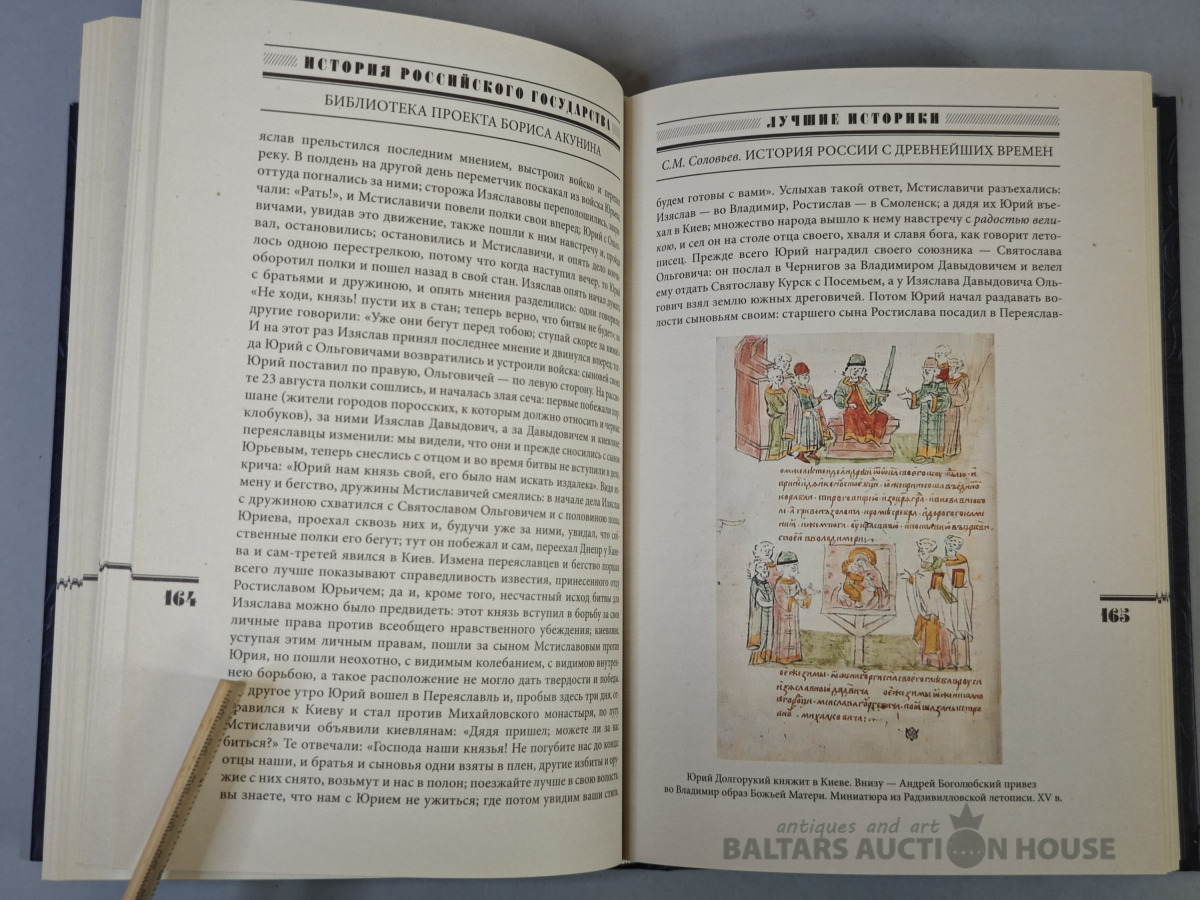 ИСТОРИЯ РОССИЙСКОГО ГОСУДАРСТВА
БИБЛИОТЕКА ПРОЕКТА БОРИСА АКУНИНА
яслав прельстился последним мнением, выстроил войско и
реку. В полдень на другой день переметчик поскакал из войска Юрьева,
оттуда погнались за ними; сторожа Изяславовы переполошились,
чали: «Рать!», и Мстиславичи повели полки свои вперед; Юрий с
вичами, увидав это движение, также пошли к ним навстречу и,
вал, остановились; остановились и Мстиславичи, и опять дело
лось одною перестрелкою, потому что когда наступил вечер, то Юрий
оборотил полки и пошел назад в свой стан. Изяслав опять начал думать
с братьями и дружиною, и опять мнения разделились: одни говорили:
«Не ходи, князь! пусти их в стан; теперь верно, что битвы не будет»;
другие говорили: «Уже они бегут перед тобою; ступай скорее за ними!»
И на этот раз Изяслав принял последнее мнение и двинулся вперед;
да Юрий с Ольговичами возвратились и устроили войска: сыновей своих
Юрий поставил по правую, Ольговичей — по левую сторону. На
те 23 августа полки сошлись, и началась злая сеча: первые побежали
шане (жители городов поросских, к которым должно относить и
клобуков), за ними Изяслав Давыдович, а за Давыдовичем и киевляне;
переяславцы изменили: мы видели, что они и прежде сносились с сыном
Юрьевым, теперь снеслись с отцом и во время битвы не вступили в дело,
крича: «Юрий нам князь свой, его было нам искать издалека». Видя
мену и бегство, дружины Мстиславичей смеялись: в начале дела Изяслав
с дружиною схватился с Святославом Ольговичем и с половиною полка
Юриева, проехал сквозь них и, будучи уже за ними, увидал, что соб-
ственные полки его бегут; тут он побежал и сам, переехал Днепр у Кане-
ва и сам-третей явился в Киев. Измена переяславцев и бегство поршан
всего лучше показывают справедливость известия, принесенного отцу
Ростиславом Юрьичем; да и, кроме того, несчастный исход битвы для
Изяслава можно было предвидеть: этот князь вступил в борьбу за свои
личные права против всеобщего нравственного убеждения; киевляне,
уступая этим личным правам, пошли за сыном Мстиславовым против
Юрия, но пошли неохотно, с видимым колебанием, с видимою внутрен-
нею борьбою, а такое расположение не могло дать твердости и победы.
другое утро Юрий вошел в Переяславль и, пробыв здесь три дня, от-
равился к Киеву и стал против Михайловского монастыря, по лугу.
Мстиславичи объявили киевлянам: «Дядя пришел; можете ли за нас
биться?» Те отвечали: «Господа наши князья! Не погубите нас до конца:
отцы наши, и братья и сыновья одни взяты в плен, другие избиты и ору-
жие с них снято, возьмут и нас в полон; поезжайте лучше в свою волость,
вы знаете, что нам с Юрием не ужиться; где потом увидим ваши стяги,
164
ЛУЧШИЕ ИСТОРИКИ
С.М. Соловьев. ИСТОРИЯ РОССИИ С ДРЕВНЕЙШИХ ВРЕМЕН
будем готовы с вами». Услыхав такой ответ, Мстиславичи разъехались:
Изяслав — во Владимир, Ростислав — в Смоленск; а дядя их Юрий въе-
хал в Киев; множество народа вышло к нему навстречу с радостью вели-
кою, и сел он на столе отца своего, хваля и славя бога, как говорит лето-
писец. Прежде всего Юрий наградил своего союзника — Святослава
Ольговича: он послал в Чернигов за Владимиром Давыдовичем и велел
ему отдать Святославу Курск с Посемьем, а у Изяслава Давыдовича Оль-
гович взял землю южных дреговичей. Потом Юрий начал раздавать во-
лости сыновьям своим: старшего сына Ростислава посадил в Переяслав-
Юрий Долгорукий княжит в Киеве. Внизу — Андрей Боголюбский привез
во Владимир образ Божьей Матери. Миниатюра из Радзивилловской летописи. XV в.
165
antiques and art
BALTARS AUCTION HOUSE